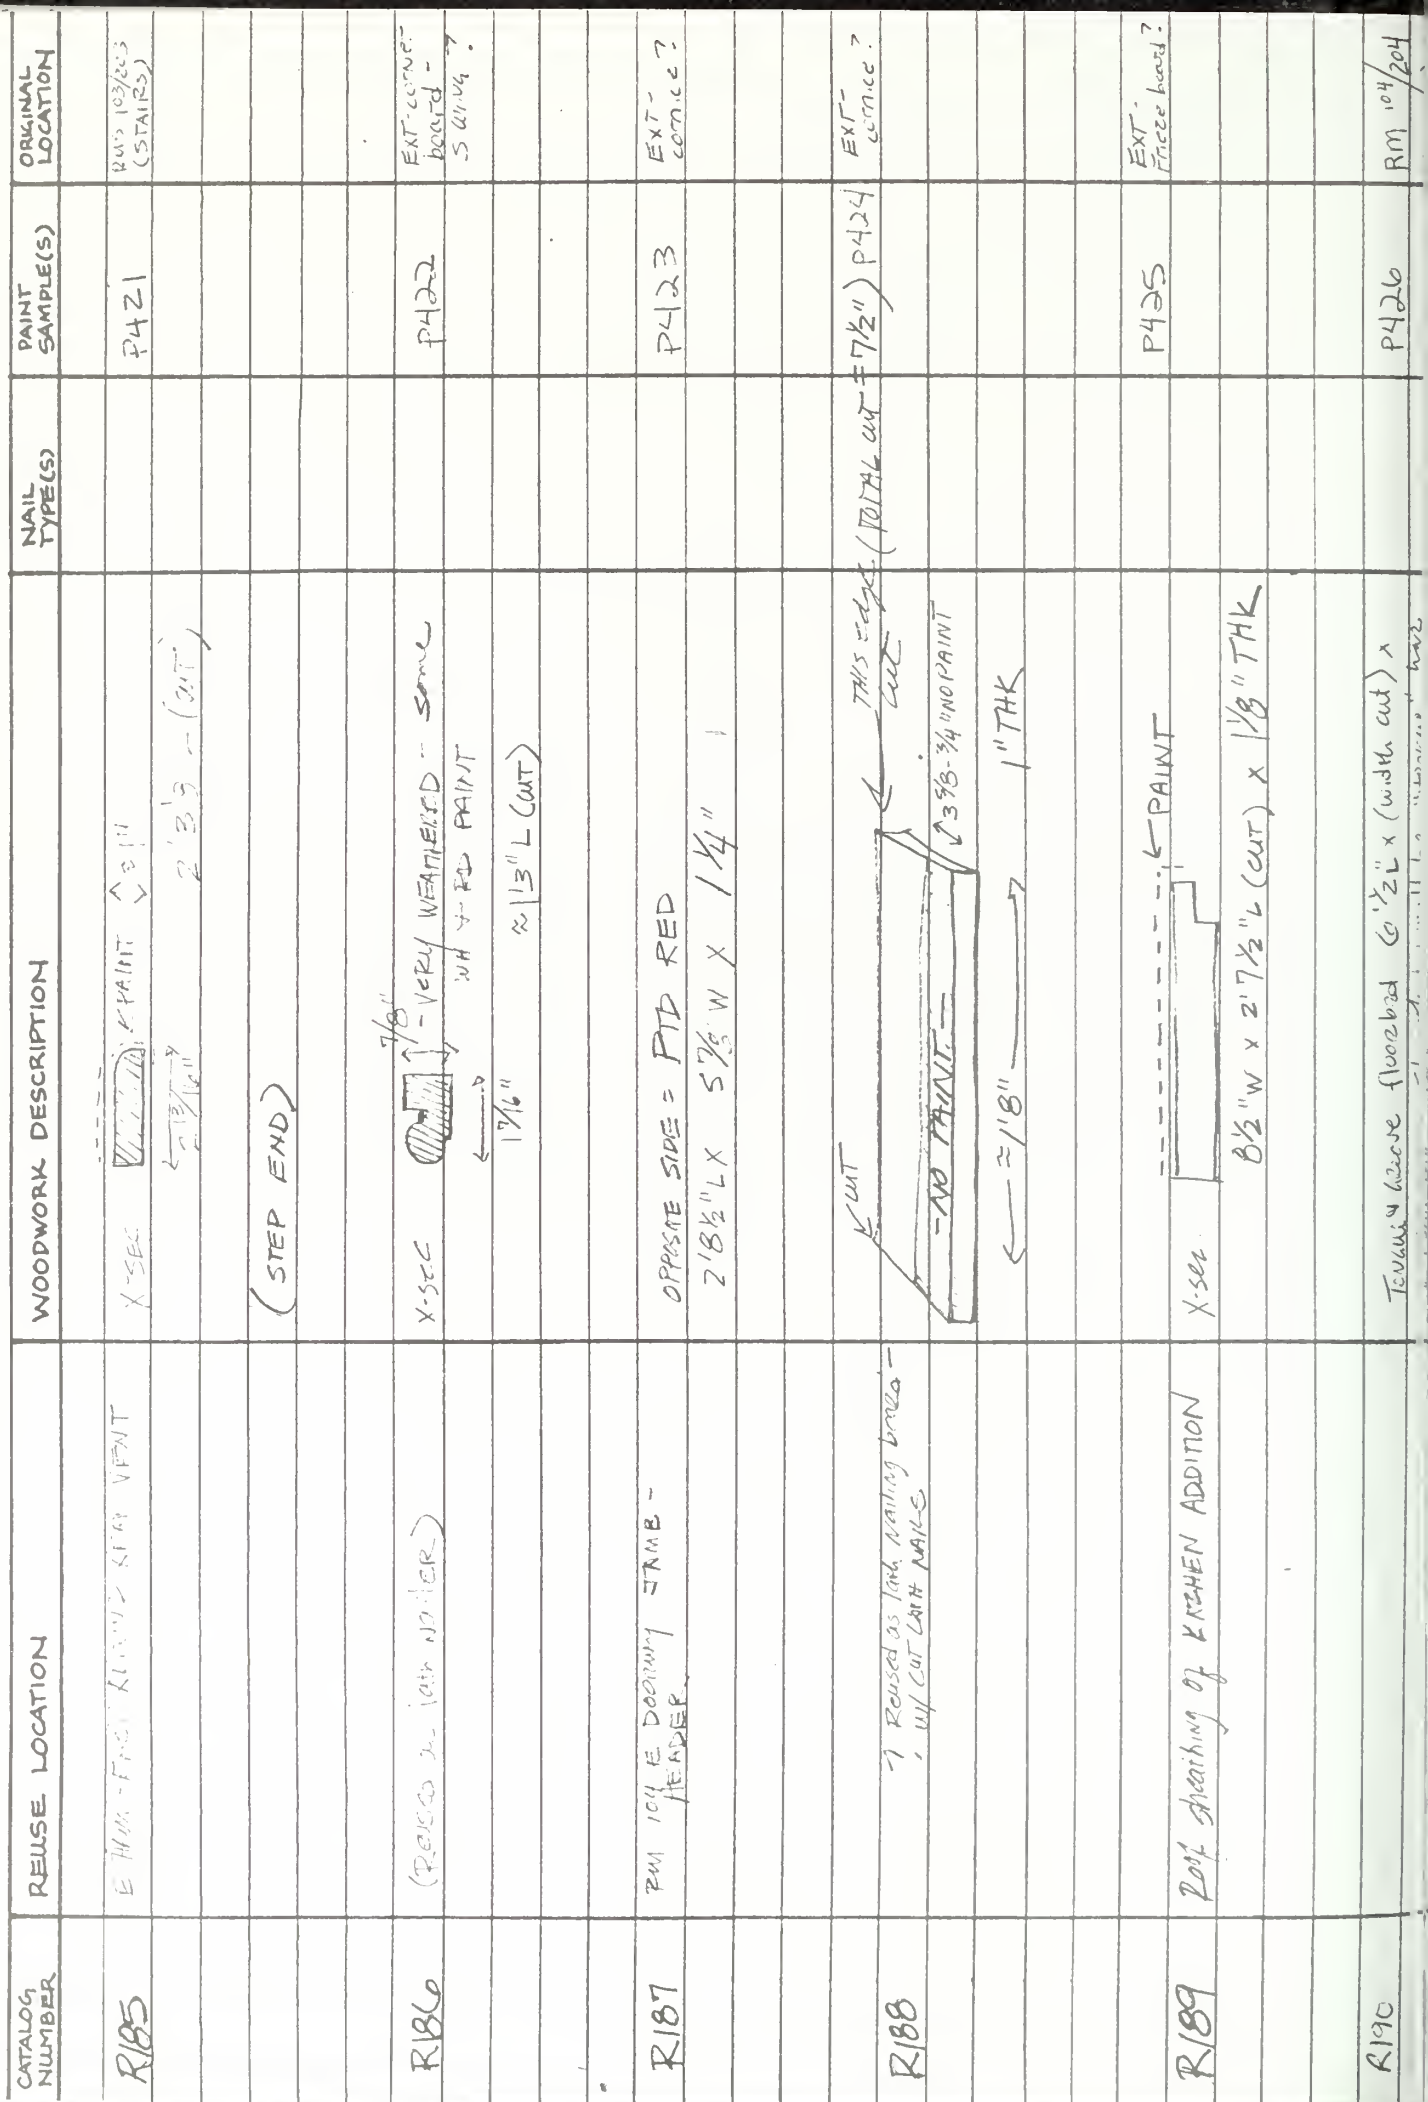 CATALOG NUMBER
REUSE LOCATION
WOODWORK DESCRIPTION
NAIL TYPE(S)
PAINT SAMPLE(S)
ORIGINAL LOCATION
R185
VENT
X-SEC
PAINT
1 3/16"
2'3"
(CUT)
(STEP END)
P421
RMS 103/203
(STAIRS)
R186
(Reused as lath nailer)
X-SEC
7/8"
- VERY WEATHERED - some
WH + RD PAINT
1 7/16"
≈ 1'3" L (CUT)
P422
EXT - corner
board -
S wing ?
R187
RM 104 E DOORWAY JAMB -
HEADER
OPPOSITE SIDE = PTD RED
2'8½" L X 5 7/8" W X 1¼"
P423
EXT -
cornice?
R188
? Reused as lath nailing
w/ CUT LATH NAILS
CUT
THIS edge (TOTAL CUT = 7½")
cut
- NO PAINT -
3 5/8 - 3/4" NO PAINT
≈ 1'8"
1" THK
P424
EXT -
cornice?
R189
Roof sheathing of KITCHEN ADDITION
X-sec.
PAINT
8½" W x 2'7½" L (CUT) x 1 1/8" THK
P425
EXT -
Frieze board?
R190
floorboard
x (width cut) x
P426
RM 104/204